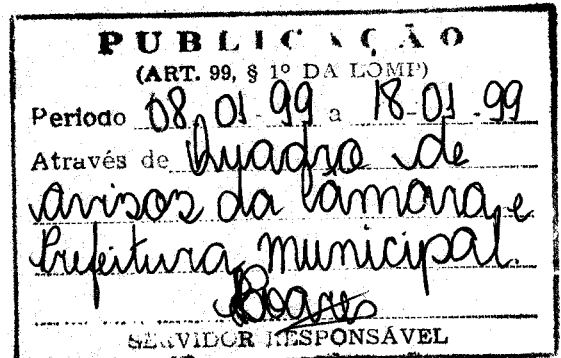 PUBLICAÇÃO
(ART. 99, § 1º DA LOMP)
Periodo 08.01.99 a 18-01.99
Através de Quadro de
avisos da Câmara e
Prefeitura Municipal.
SERVIDOR RESPONSÁVEL